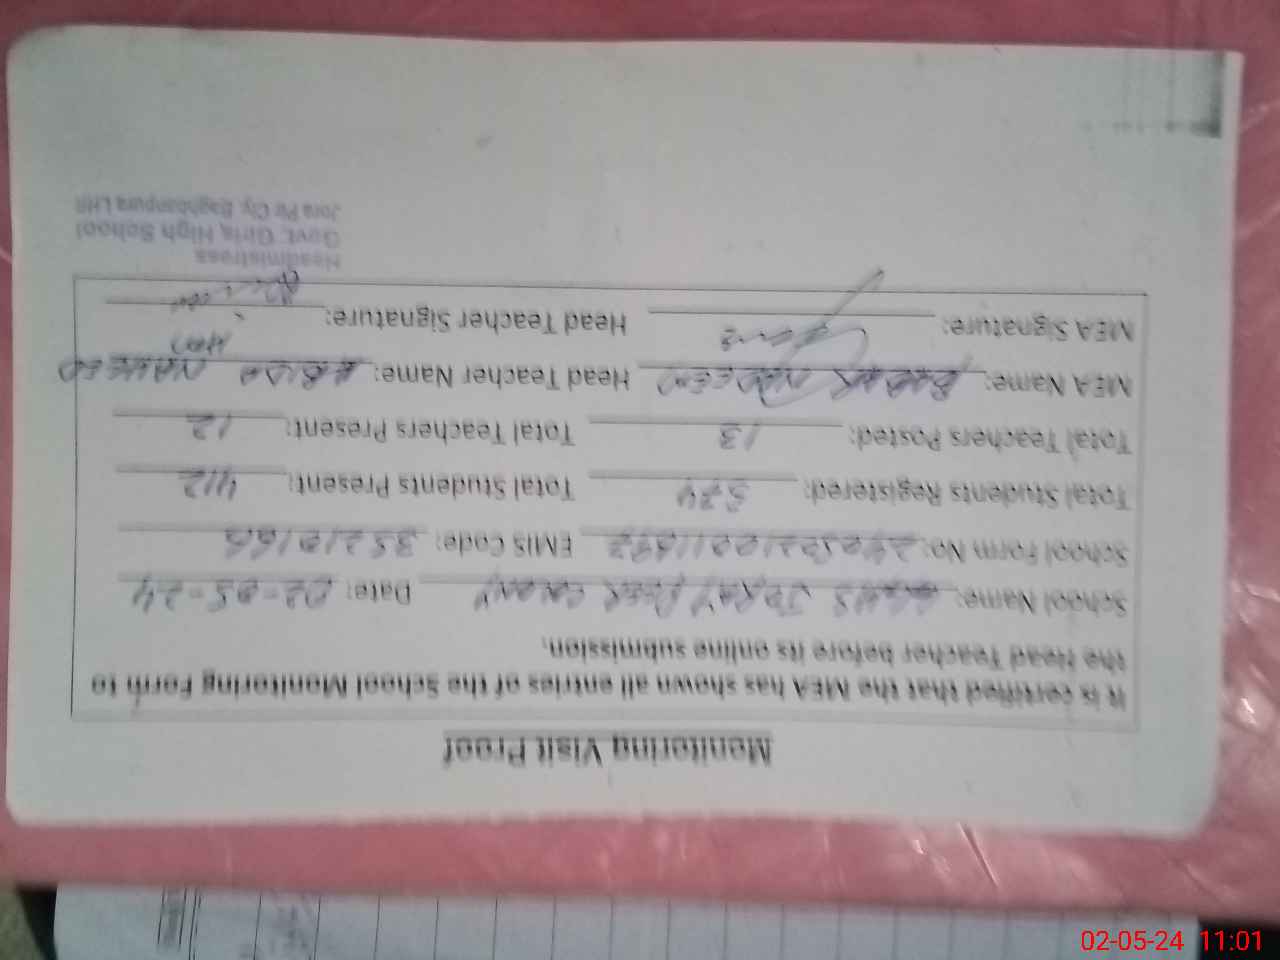 Monitoring Visit Proof
It is certified that the MEA has shown all entries of the School Monitoring Form to
the Head Teacher before its online submission.
School Name: GGHS JORAY PEER COLONY Date: 02-05-24
School Form No: EMIS Code: 35210166
Total Students Registered: 574 Total Students Present: 412
Total Teachers Posted: 13 Total Teachers Present: 12
MEA Name: BABAR NADEEM Head Teacher Name: ABIDA NAHEED
MEA Signature: Head Teacher Signature:
Headmistress
Govt. Girls High School
Jora Pir Cly. Baghbanpura LHR
02-05-24 11:01